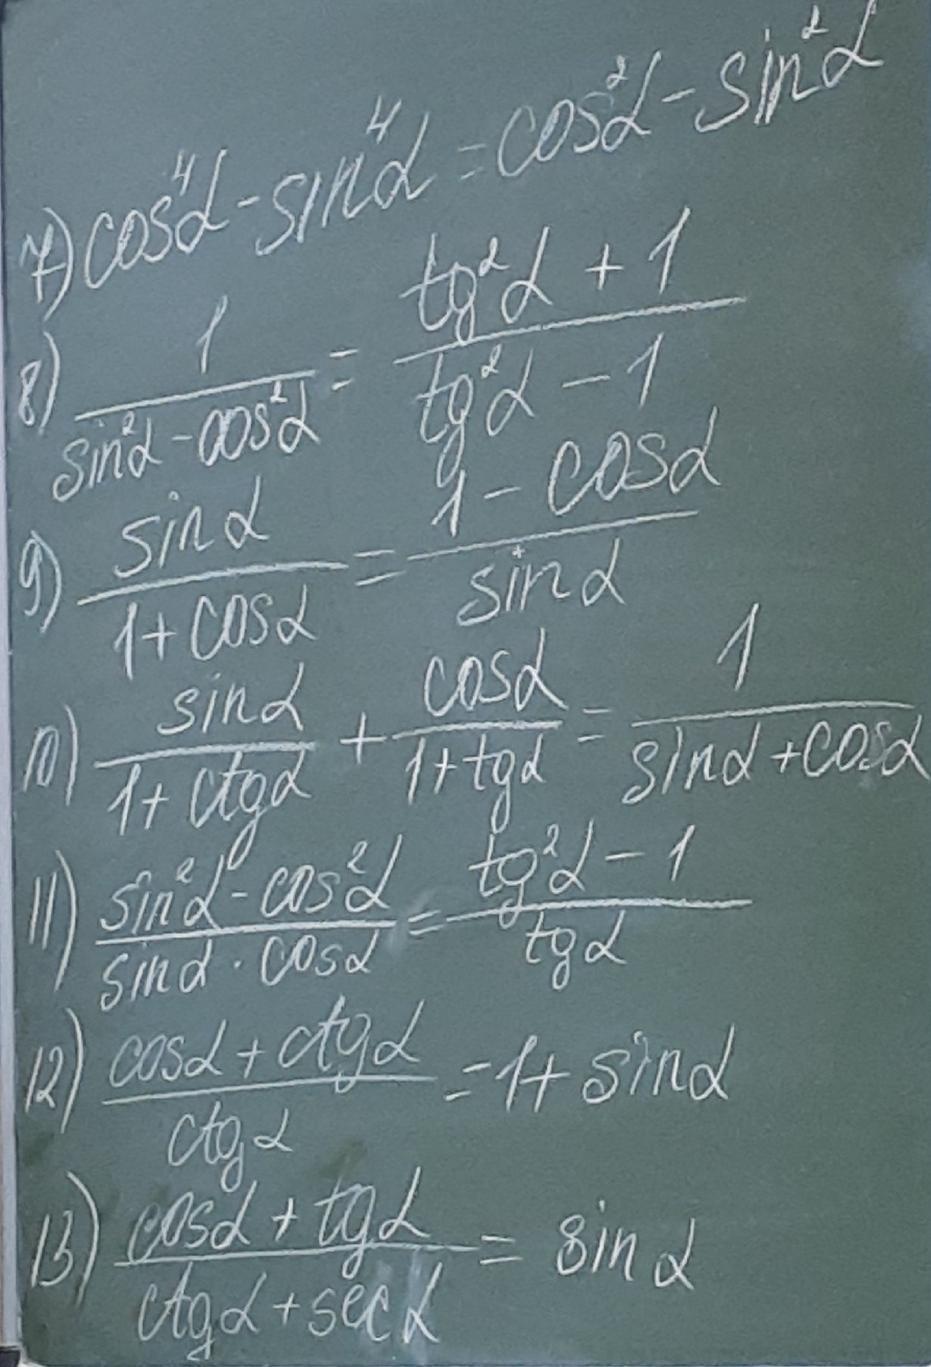 7) cos⁴α - sin⁴α = cos²α - sin²α
8) 1/(sin²α - cos²α) = (tg²α + 1)/(tg²α - 1)
9) sinα/(1 + cosα) = (1 - cosα)/sinα
10) sinα/(1 + ctgα) + cosα/(1 + tgα) = 1/(sinα + cosα)
11) (sin²α - cos²α)/(sinα · cosα) = (tg²α - 1)/tgα
12) (cosα + ctgα)/ctgα = 1 + sinα
13) (cosα + tgα)/(ctgα + secα) = sinα